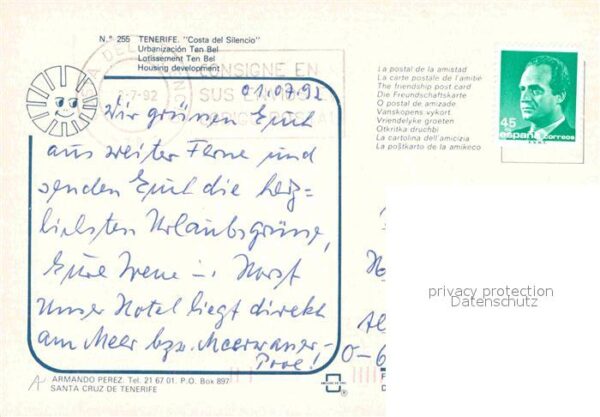 N.º 255 TENERIFE. "Costa del Silencio"
Urbanización Ten Bel
Lotissement Ten Bel
Housing development
7-92
CONSIGNE EN
SUS
01.07.92
Wir grüssen Euch
aus weiter Ferne und
senden Euch die herz=
lichsten Urlaubsgrüsse,
Eure Irene u. Horst
Unser Hotel liegt direkt
am Meer bzw. Meerwasser-
Pool!
La postal de la amistad
La carte postale de l'amitié
The friendship post card
Die Freundschaftskarte
O postal de amizade
Vanskopens vykort
Vriendelyke groeten
Otkritka druchbi
La cartolina dell'amicizia
La poŝtkarto de la amikeco
45
españa correos
privacy protection
Datenschutz
O-6
ARMANDO PEREZ. Tel. 21 67 01. P.O. Box 897
SANTA CRUZ DE TENERIFE